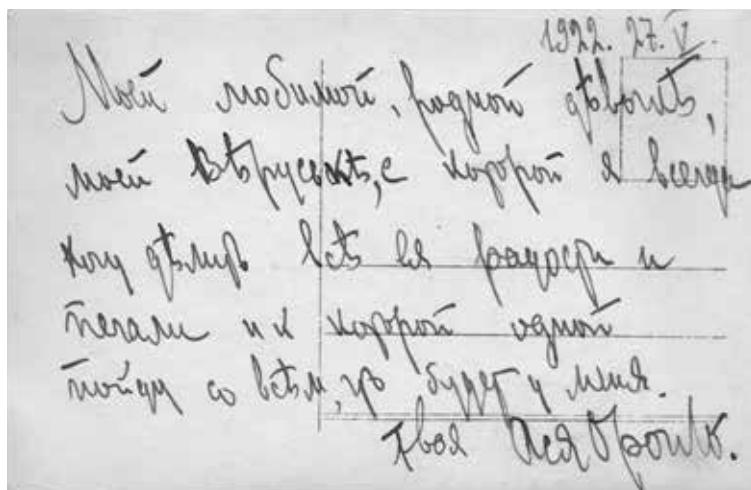 1922. 27. V.
Моей любимой, родной дѣвочкѣ,
моей Вѣруськѣ, с которой я всегда
хочу дѣлить всѣ ея радости и
печали и к которой одной
пойду со всѣм, что будет у меня.
Твоя Ася